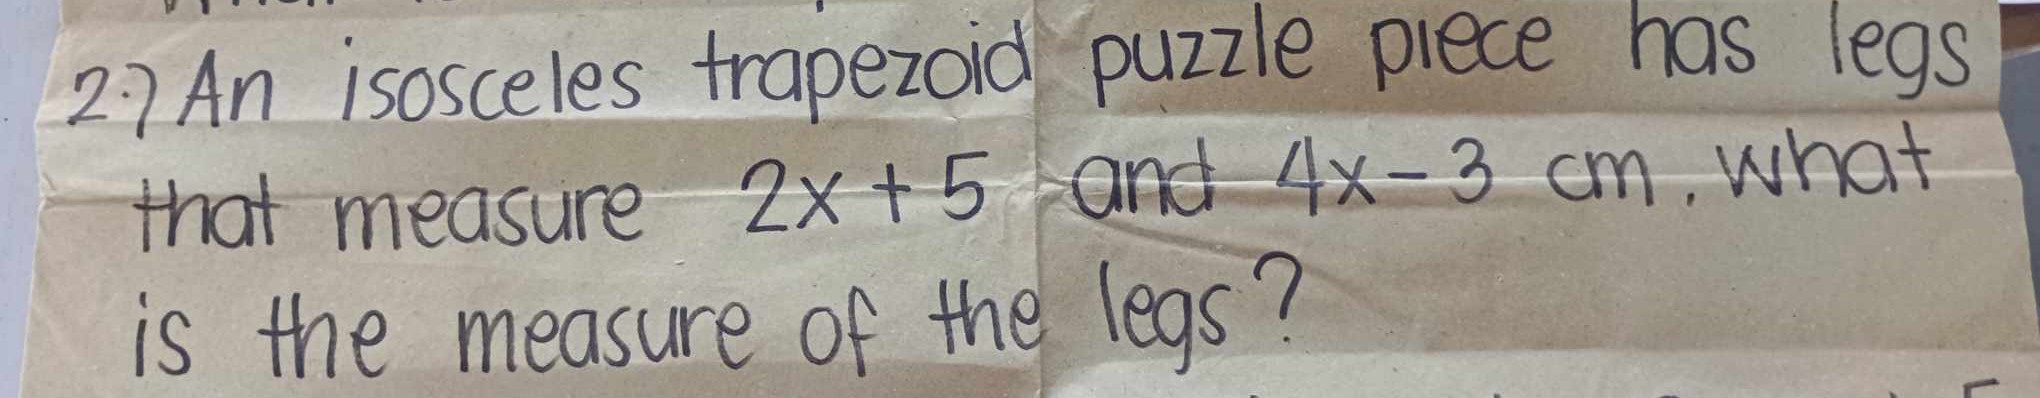 2.) An isosceles trapezoid puzzle piece has legs
that measure 2x + 5 and 4x - 3 cm. what
is the measure of the legs?